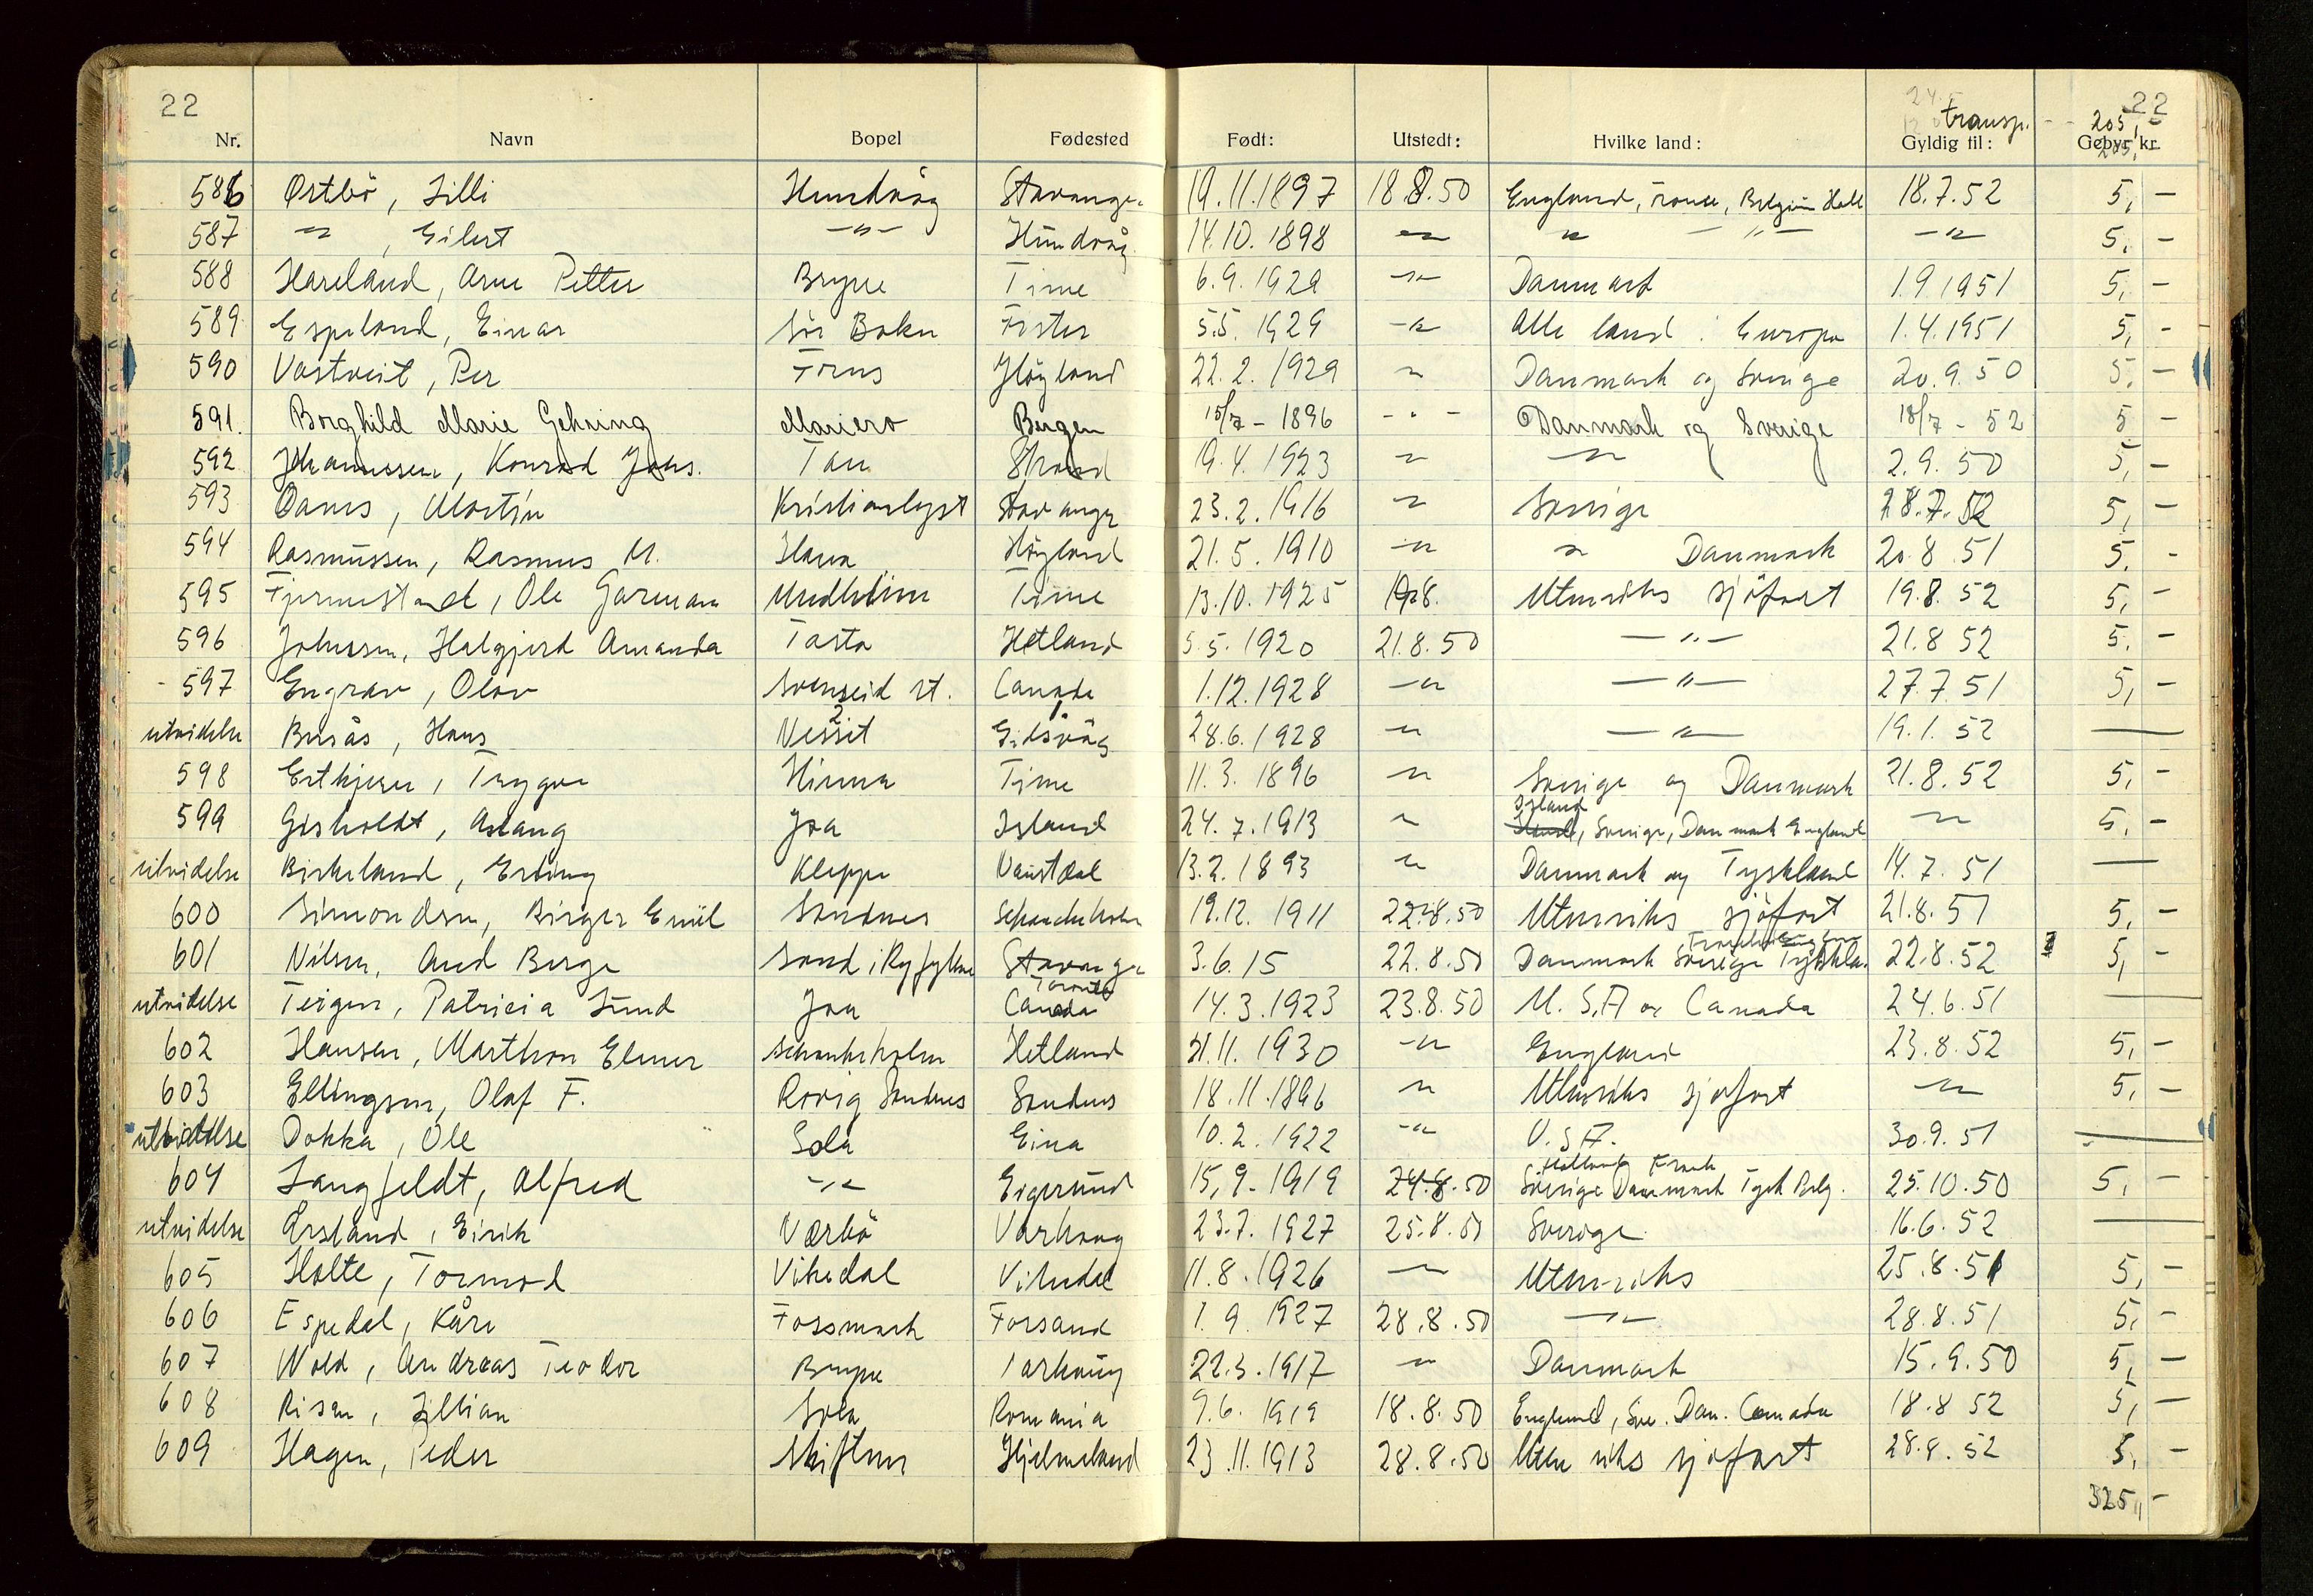 22 22
transp. - - 205,-
205,-
Nr. Navn Bopel Fødested Født: Utstedt: Hvilke land: Gyldig til: Gebyr kr.
586 Østbö, Lilli Hundvåg Stavanger 19.11.1897 18.8.50 England, Belgien Holl 18.7.52 5,-
587 -"-, Eilert -"- Hundvåg 14.10.1898 -"- -"- -"- -"- 5,-
588 Hareland, Arne Petter Bryne Time 6.9.1929 -"- Danmark 1.9 1951 5,-
589 Espeland, Einar Sör Bokn 5.5.1929 -"- Alle land i Europa 1.4.1951 5,-
590 Vastveit, Per Höyland 22.2.1929 " Danmark og Sverige 20.9.50 5,-
591. Borghild Marie Gehring Mariero Bergen 15/7-1896 -"- Danmark og Sverige 18/7-52 5 -
592 Johannessen, Konrad Johs. Tau Strand 19.4.1923 " -"- 2.9.50 5,-
593 Oanes, Martin Kristianlyst Stavanger 23.2.1916 " Sverige 28.7.52 5,-
594 Rasmussen, Rasmus M. Hana Höyland 21.5.1910 -"- " Danmark 20.8.51 5,-
595 Ole Garman Undheim Time 13.10.1925 19.8. Utenriks sjöfart 19.8.52 5,-
596 Johnsen, Halgjerd Amanda Tasta Hetland 5.5.1920 21.8.50 -"- 21.8 52 5,-
597 Engrav, Olav Svenseid st. Canada 1.12.1928 -"- -"- 27.7 51 5,-
utvidelse Busås, Hans 28.6.1928 " -"- 19.1.52 —
598 Trygve Hinna Time 11.3.1896 " Sverige og Danmark 21.8.52 5,-
599 Gisholdt, Aslaug Joa Island 24.7.1913 " Island, Sverige, Danmark England -"- 5,-
utvidelse Birkeland, Erling Kleppe Naustdal 13.2.1893 " Danmark og Tyskland 14.7.51 —
600 Simondsen, Birger Emil Sandnes Schancheholen 19.12.1911 22.8.50 Utenriks sjöfart 21.8.51 5,-
601 Nilsen, Aud Berge Sand i Ryfylke Stavanger 3.6.15 22.8.50 Danmark Sverige Tyskla. 22.8.52 5,-
utvidelse Teigen, Patricia Lund Joa Toronto Canada 14.3.1923 23.8.50 U.S.A og Canada 24.6.51 —
602 Hansen, Marthon Elmer Schancheholen Hetland 21.11.1930 -"- England 23.8.52 5,-
603 Ellingsen, Olaf F. Rovig Sandnes Sandnes 18.11.1896 " Utenriks sjöfart -"- 5,-
utvidelse Dokka, Ole Sola Eina 10.2.1922 -"- U.S.A. 30.9.51 —
604 Langfeldt, Alfred -"- Eigersund 15,9-1919 24.8.50 Holland Frank Sverige Danmark Tysk Belg. 25.10.50 5,-
utvidelse Årsland, Eirik Værbö Varhaug 23.7.1927 25.8.50 Sverige 16.6.52 —
605 Holte, Tormod Vikedal Vikedal 11.8.1926 -"- Utenriks 25.8.51 5,-
606 Espedal, Kåre Fossmark Forsand 1.9.1927 28.8.50 -"- 28.8.51 5,-
607 Wold, Andreas Teodor Bryne Varhaug 22.3.1917 " Danmark 15.9.50 5,-
608 Risan, Lillian Sola Romania 9.6.1919 18.8.50 England, Sve. Dan. Canada 18.8 52 5,-
609 Hagen, Peder Skiftun Hjelmeland 23.11.1913 28.8.50 Utenriks sjöfart 28.8.52 5,-
325,-